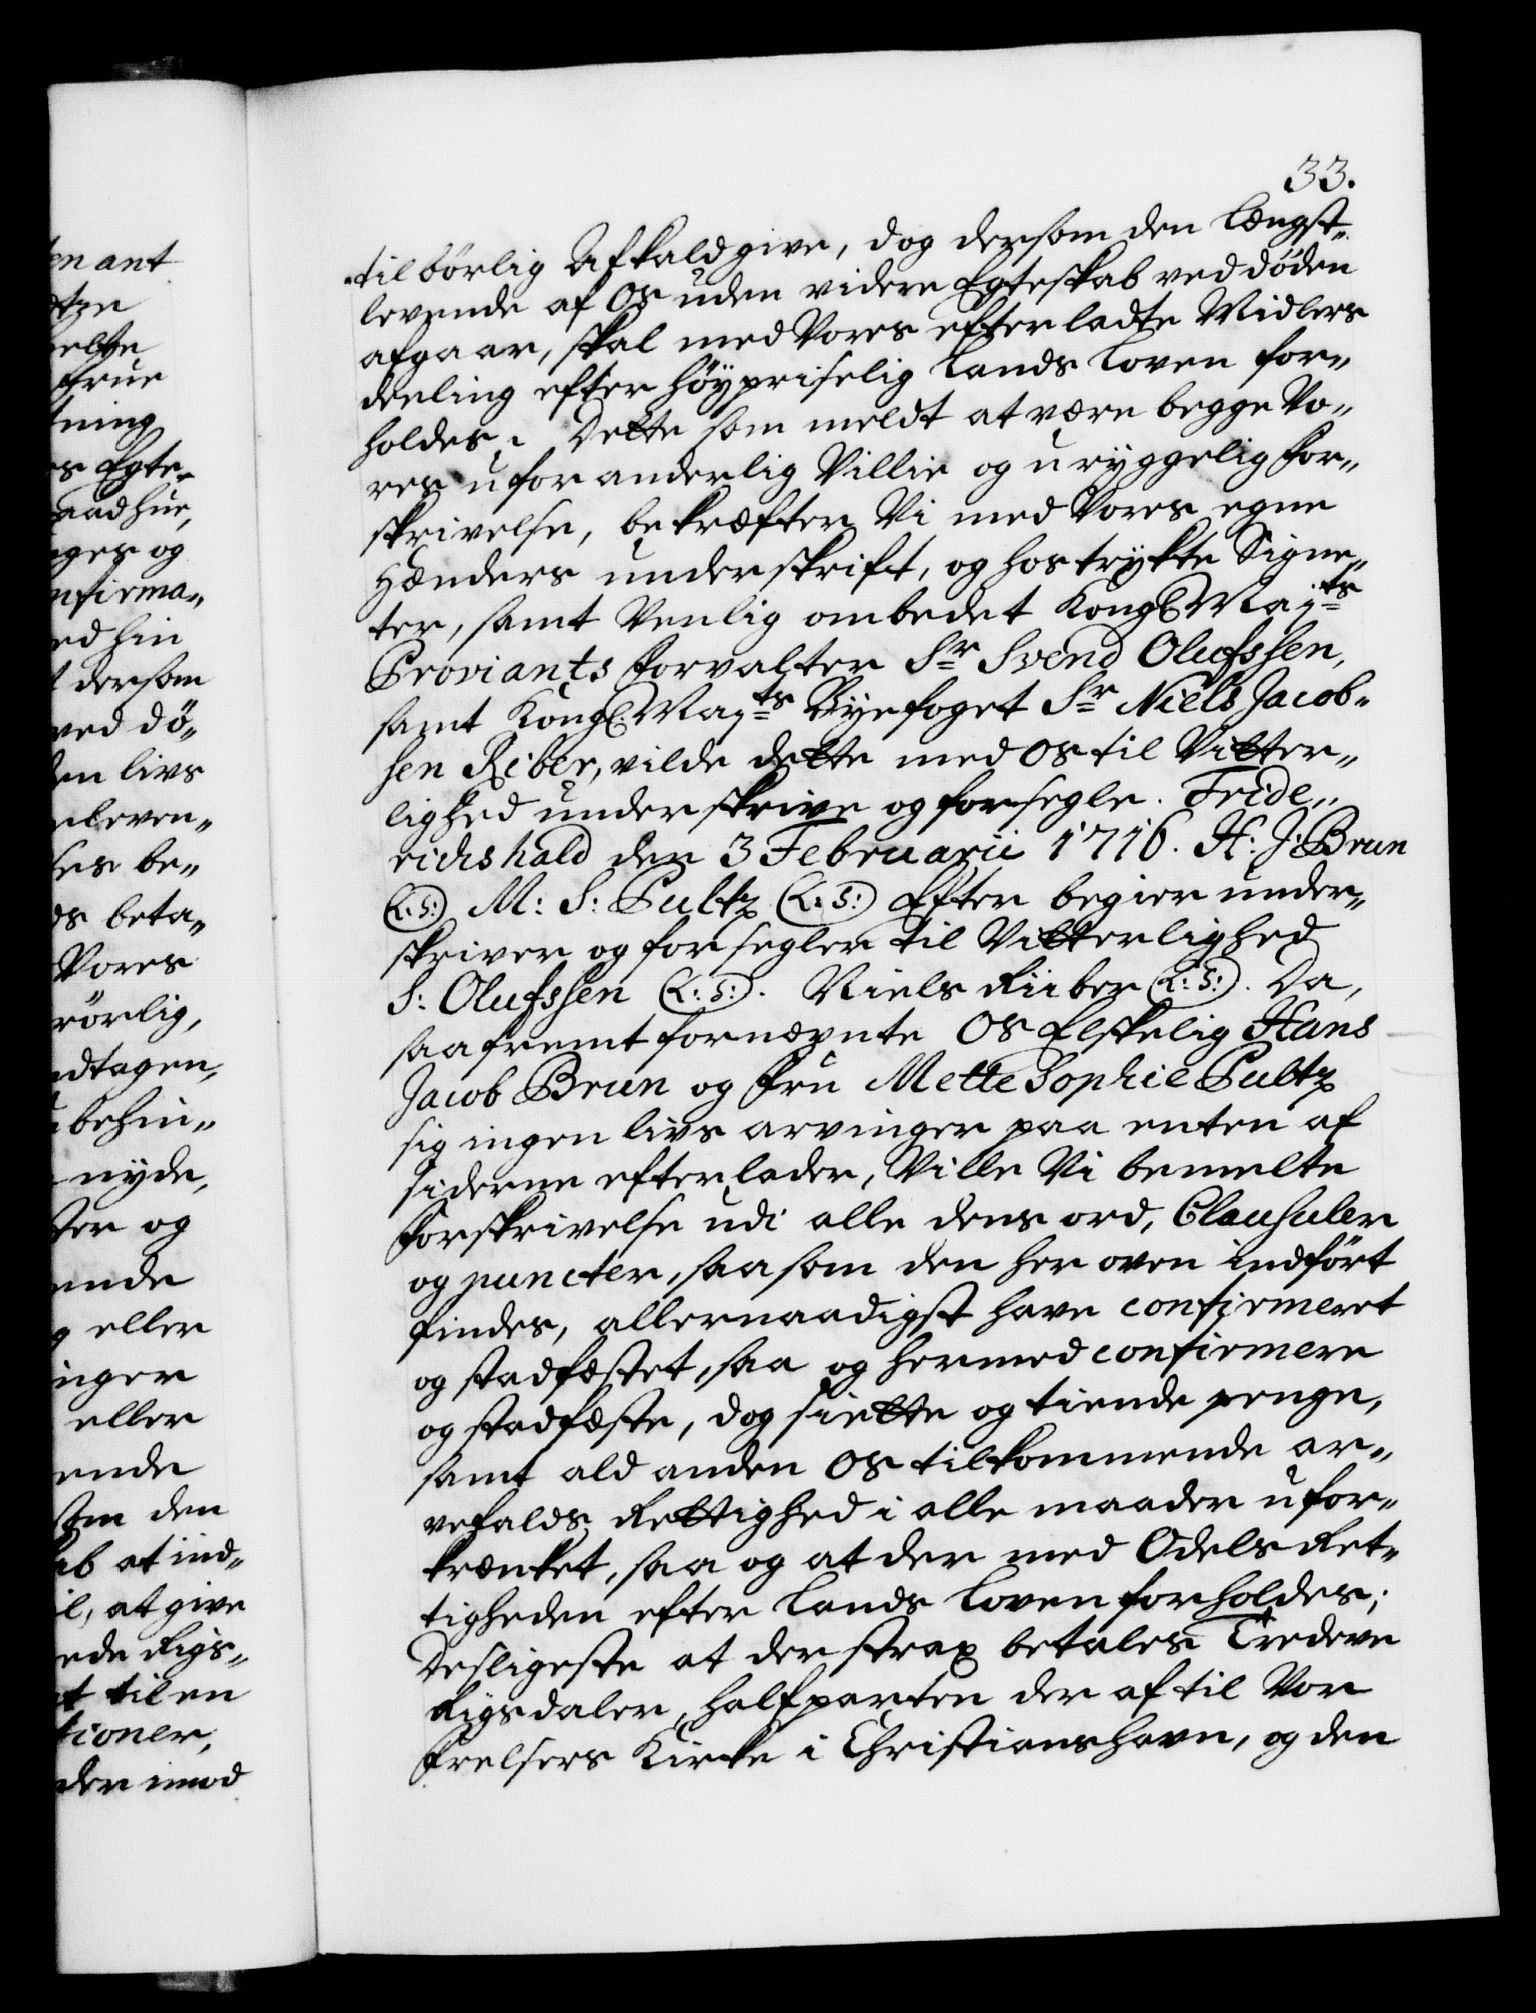 33.
til börlig Afkald give, dog dersom den Længst-
levende af Os uden videre Egteskab ved döden
afgaar, skal med Vores efterladte Midlers
deeling efter Höypriselig Lands Loven for-
holdes. Dette som meldt at være begge Vo-
res uforanderlig Villie og uryggelig For-
skrivelse, bekræfter Vi med Vores egne
Hænders underskrift, og hostrykte Signe-
ter, samt Venlig ombedet Kongl. Maj:ts
Proviants Forvalter Sr Svend Olufssen,
samt Kongl: Maj:ts Byefoget Sr Niels Jacob-
sen Riber, vilde dette med Os til Vitter-
lighed underskrive og forsegle. Fride-
richshald den 3 Februarii 1716. H: J: Brun
(L:S:) M: S: Pultz (L:S:) Efter begier under-
skriver og forsegler til Vitterlighed
S: Olufssen (L:S:). Niels Riiber (L:S:). Da,
saafremt fornevnte Os Elskelig Hans
Jacob Brun og Fru Mette Sophie Pultz
sig ingen livs arvinger paa enten af
siderne efterlader, Ville Vi bemelte
Forskrivelse udi alle dens ord, Clausuler
og puncter, saasom den her oven indfört
findes, allernaadigst have confirmeret
og stadfæstet, saa og hermed confirmere
og stadfæste, dog siette og tiende penge,
samt ald anden Os tilkommende ar-
vefalds Rettighed i alle maader ufor-
krænket, saa og at der med Odels Ret-
tigheden efter Lands Loven forholdes;
Desligeste at der strax betales Tredeve
Rigsdaler, halfparten der af til Vor
Frelsers Kirke i Christianshavn, og den